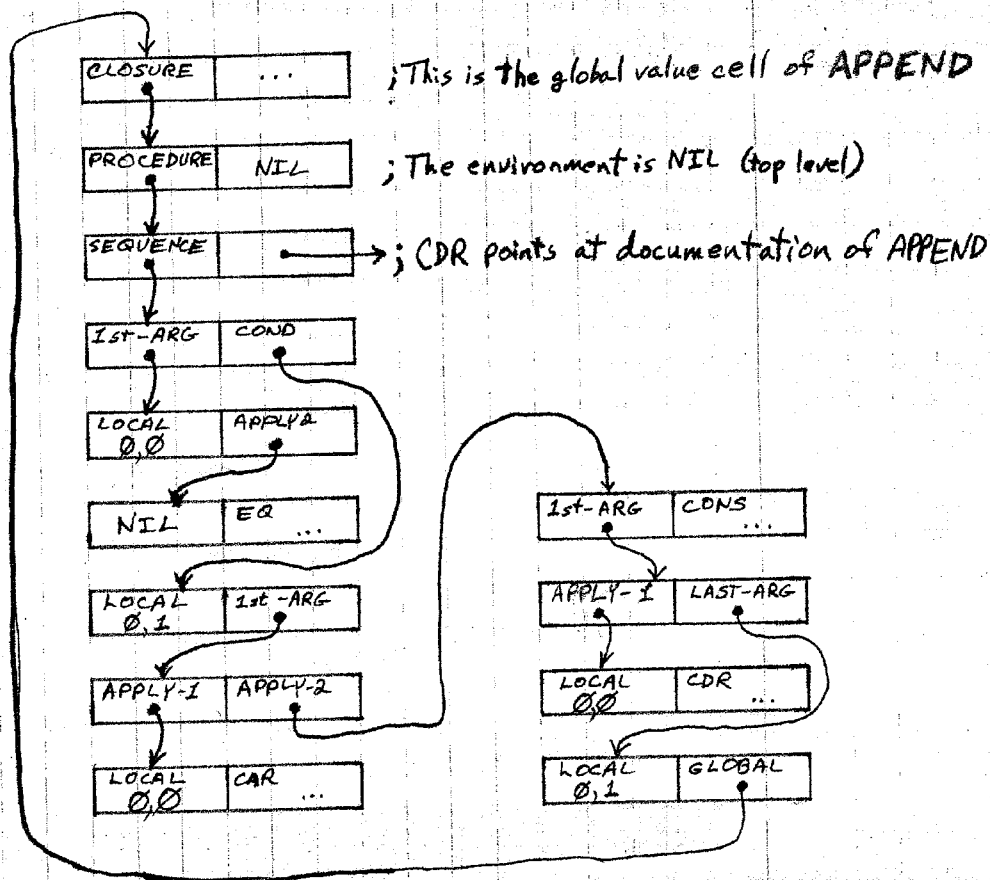 CLOSURE ... ; This is the global value cell of APPEND
PROCEDURE NIL ; The environment is NIL (top level)
SEQUENCE ; CDR points at documentation of APPEND
1st-ARG COND
LOCAL APPLY2
0,0
NIL EQ ...
LOCAL 1st-ARG
0,1
APPLY-1 APPLY-2
LOCAL CAR
0,0 ...
1st-ARG CONS
...
APPLY-1 LAST-ARG
LOCAL CDR
0,0 ...
LOCAL GLOBAL
0,1